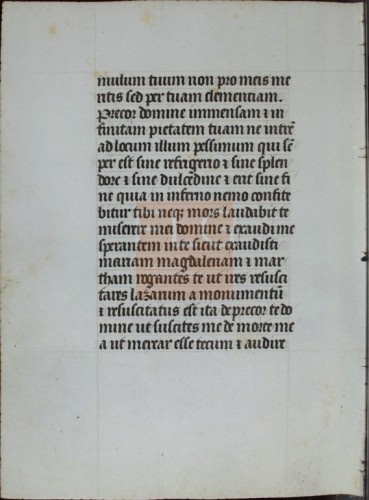 mulum tuum non pro meis me
ritis sed per tuam clementiam.
Precor domine immensam ⁊ in
finitam pietatem tuam ne intrē
ad locum illum pessimum qui sē
per est sine refrigerio ⁊ sine splen
dore ⁊ sine dulcedine ⁊ erit sine fi
ne quia in inferno nemo confite
bitur tibi neq; mors laudabit te
miserere mei domine ⁊ exaudi me
sperantem in te sicut exaudisti
mariam magdalenam ⁊ mar
tham rogantes te ut
tares lazarum a monumentū
⁊ resuscitatus est ita deprecor te do
mine ut suscites me de morte me
a ut merear esse tecum ⁊ audire